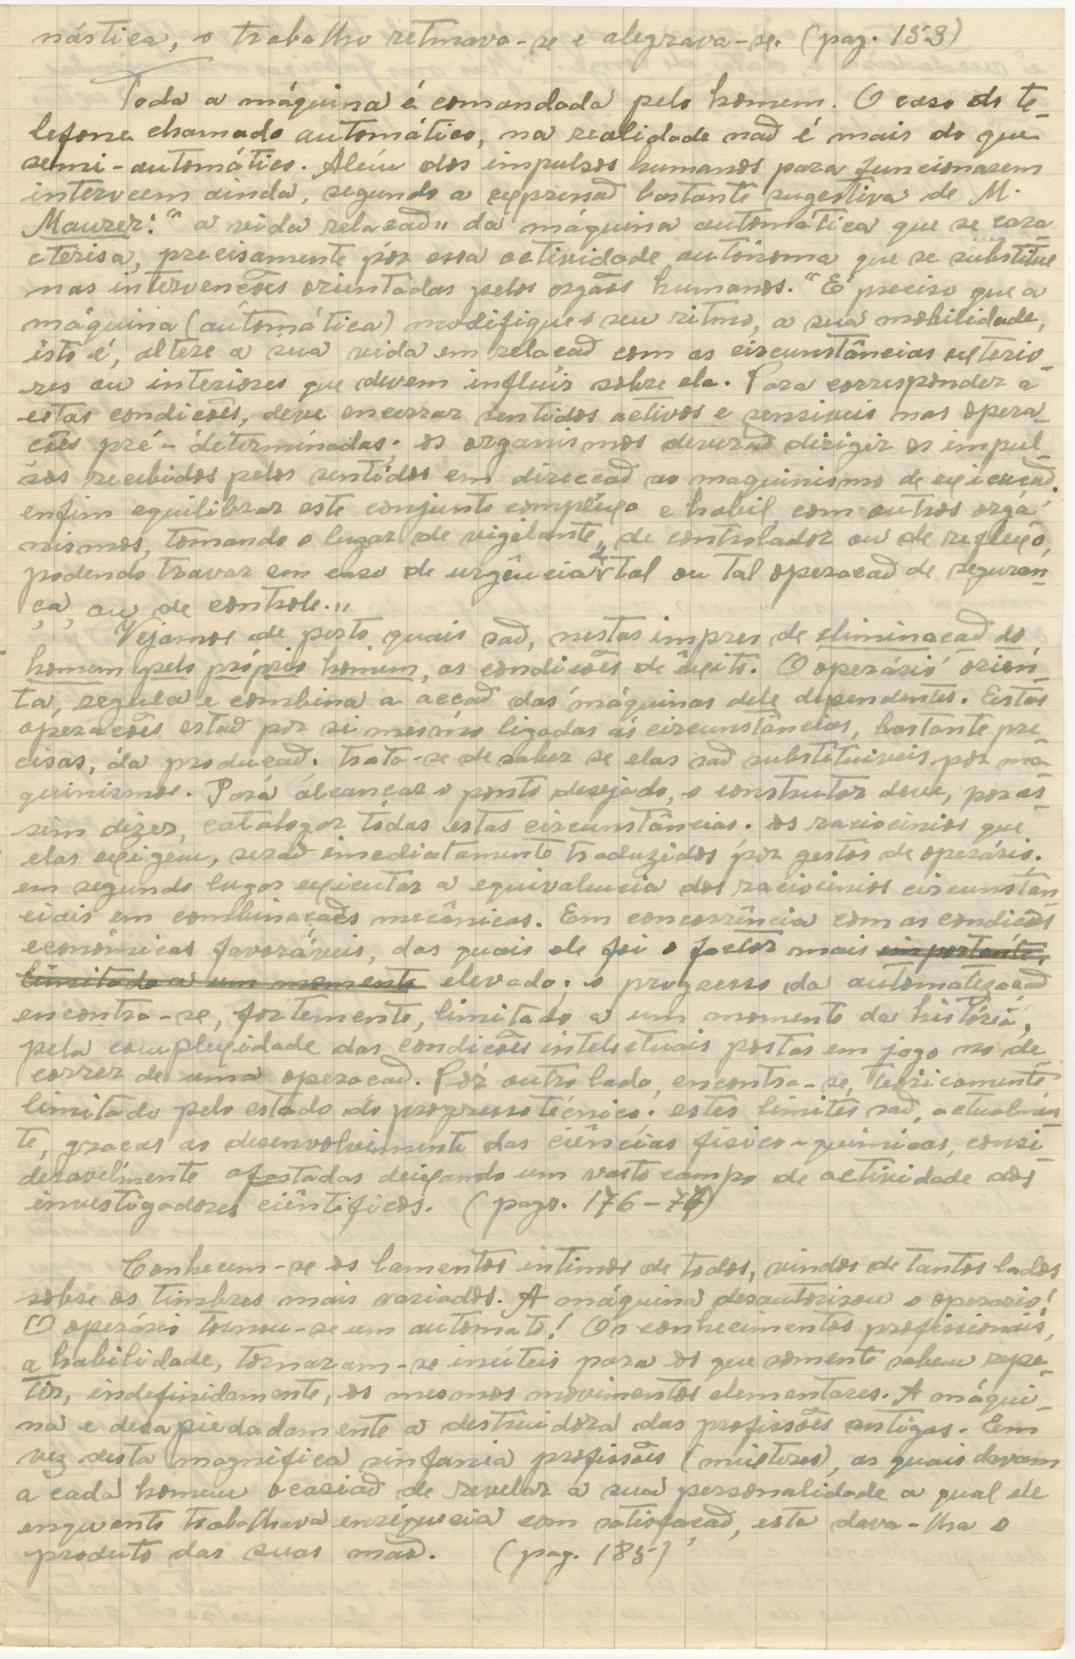 nástica, o trabalho retmava-se e alegrava-se. (pag. 153)
Toda a máquina é comandada pelo homem. O caso do te-
lefone chamado automático, na realidade naõ é mais do que
semi-automático. Além dos impulsos humanos para funcionarem
interveem ainda, segundo a expressaõ bastante sugestiva de M.
Maurer: "a vida relacaõ" da máquina automática que se cara
cterisa, precisamente pór essa actividade autónoma que se substitue
nas intervencões orientadas pelos orgãos humanos. "É preciso que a
máquina (automática) modifique o seu ritmo, a sua mobilidade,
isto é, altere a sua vida em relacaõ com as circunstâncias exterio-
res ou interiores que devem influir sobre ela. Para corresponder a
estas condicões, deve encerrar sentidos activos e sensiveis nas opera-
cões pré-determinadas; os organismos deveraõ dirigir os impul-
sos recebidos pelos sentidos em direccaõ ao maquinismo de execucaõ.
enfim equilibrar este conjunto complexo e habil com outros orgá-
nismos, tomando o lugar de vigilante, de controlador ou de reflexo,
podendo travar em caso de urgência tal ou tal operacaõ de seguran-
ça, ou de controle."
Vejamos de perto quais saõ, nestas de eliminacaõ do
homem pelo próprio homem, as condicões de êxito. O operário orien-
ta, regula e combina a accaõ das máquinas dele dependentes. Estas
operacões estaõ por si mesmo ligadas ás circunstâncias, bastante pre
cisas, da producaõ. trata-se de saber se elas saõ substituiveis por ma-
quinismos. Pará alcançar o ponto desejado, o construtor deve, por as-
sim dizer, catalogar todas estas circunstâncias. os raciocinios que
elas exigem, seraõ imediatamente traduzidos pór gestos de operário.
em segundo lugar executar a equivalencia dos raciocinios circunstân
ciais em combinacaões mecânicas. Em concorrência com as condicões
económicas favoráveis, das quais ele foi o factor mais importante,
limitado a um momento elevado; o progresso da automatizacaõ
encontra-se, fortemente, limitado a um momento da história,
pela complexidade das condicões intelectuais postas em jogo no de-
correr de uma operacaõ. Pór outro lado, encontra-se, teóricamente
limitado pelo estado do progresso técnico; estes limites saõ, actualmen
te, gracas ao desenvolvimento das ciências fisico-quimicas, consi-
deravelmente afastadas deixando um vasto campo de actividade aos
investigadores ciêntificos. (pags. 176-77)
Conhecem-se os lamentos intimos de todos, vindos de tantos lados
sobre os timbres mais variados. A máquina desautorisou o operario!
O operário tornou-se um automato! Os conhecimentos profissionais,
a habilidade, tornaram-se inúteis para os que somente sabem repe-
tir, indefinidamente, os mesmos movimentos elementares. A máqui-
na e desapiedadamente a destruidora das profissões antigas. Em
vez desta magnifica sinfonia profissões (misteres), as quais davam
a cada homem ocasiaõ de revelar a sua personalidade a qual ele
enquanto trabalhava enriquecia com satisfacaõ, esta dava-lha o
produto das suas maõ. (pag. 185)